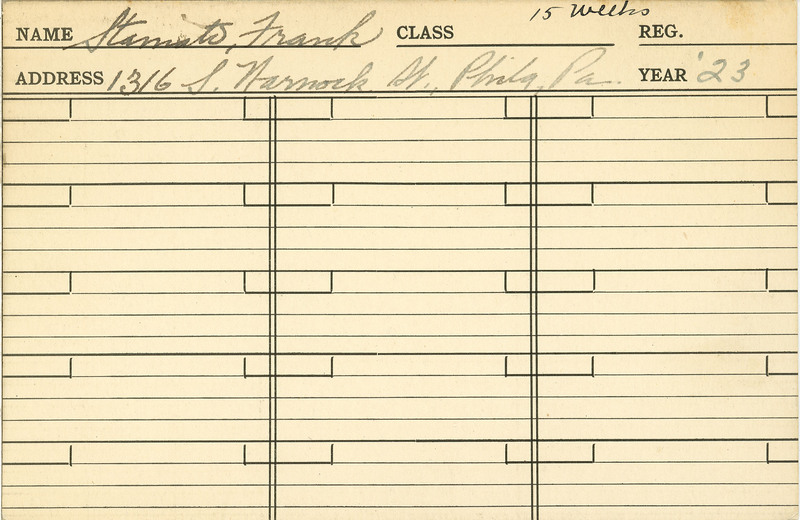 15 weeks
NAME Stamato, Frank CLASS REG.
ADDRESS 1316 S. Warnock St., Phila, Pa. YEAR '23